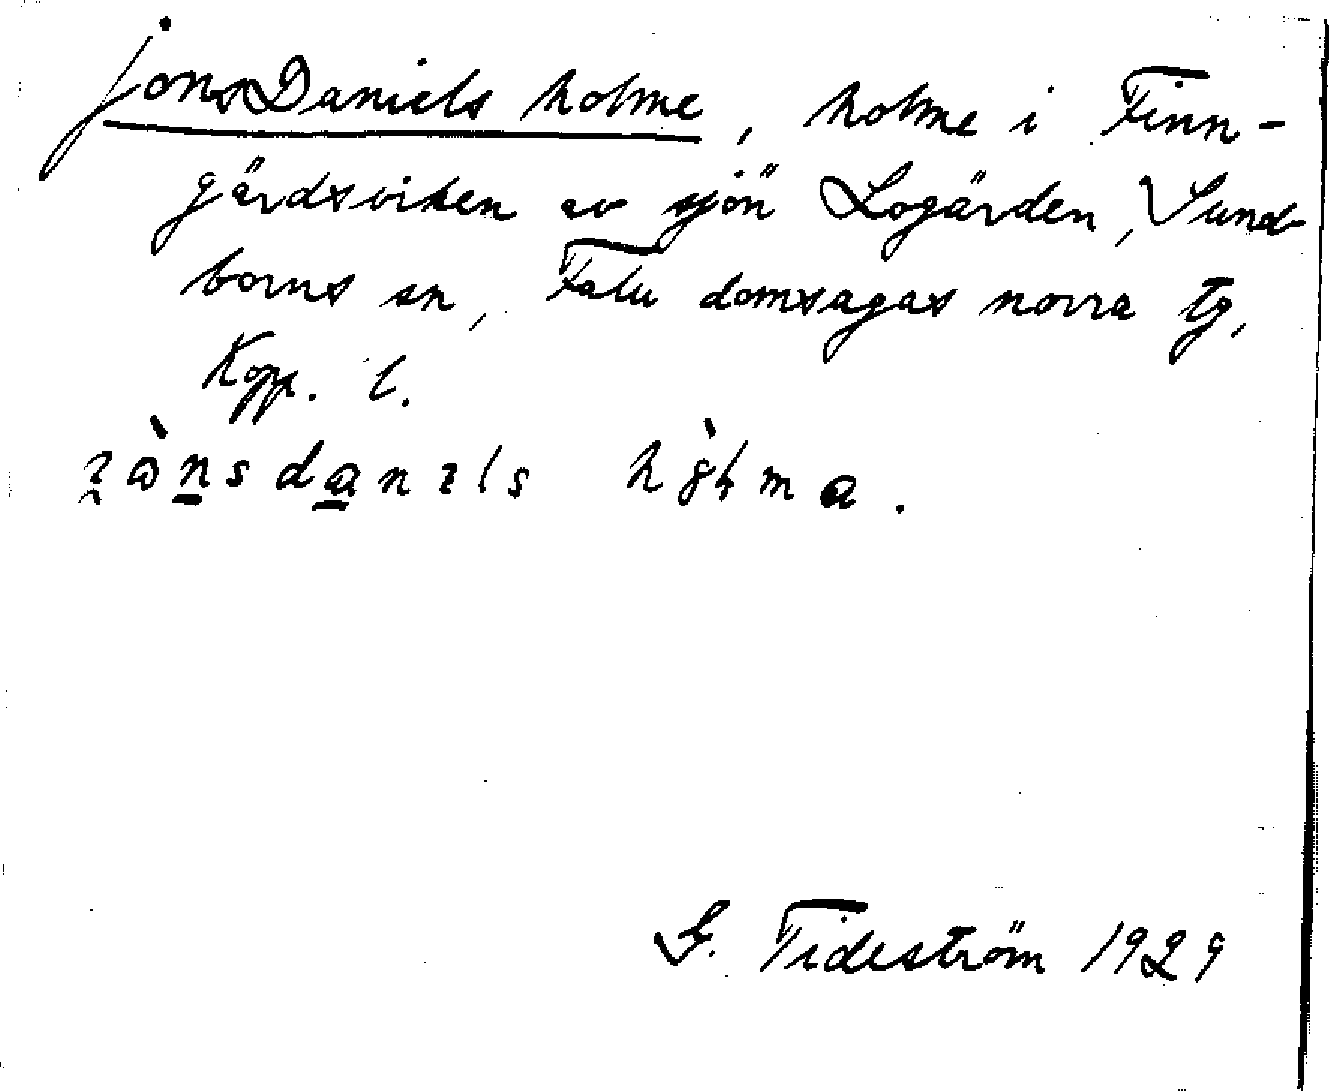 Jons Daniels holme, holme i Finn-
gärdsviken av sjön Logärden, Sund-
borns sn, Falu domsagas norra tg,
Kopp. l.
G. Tideström 1929